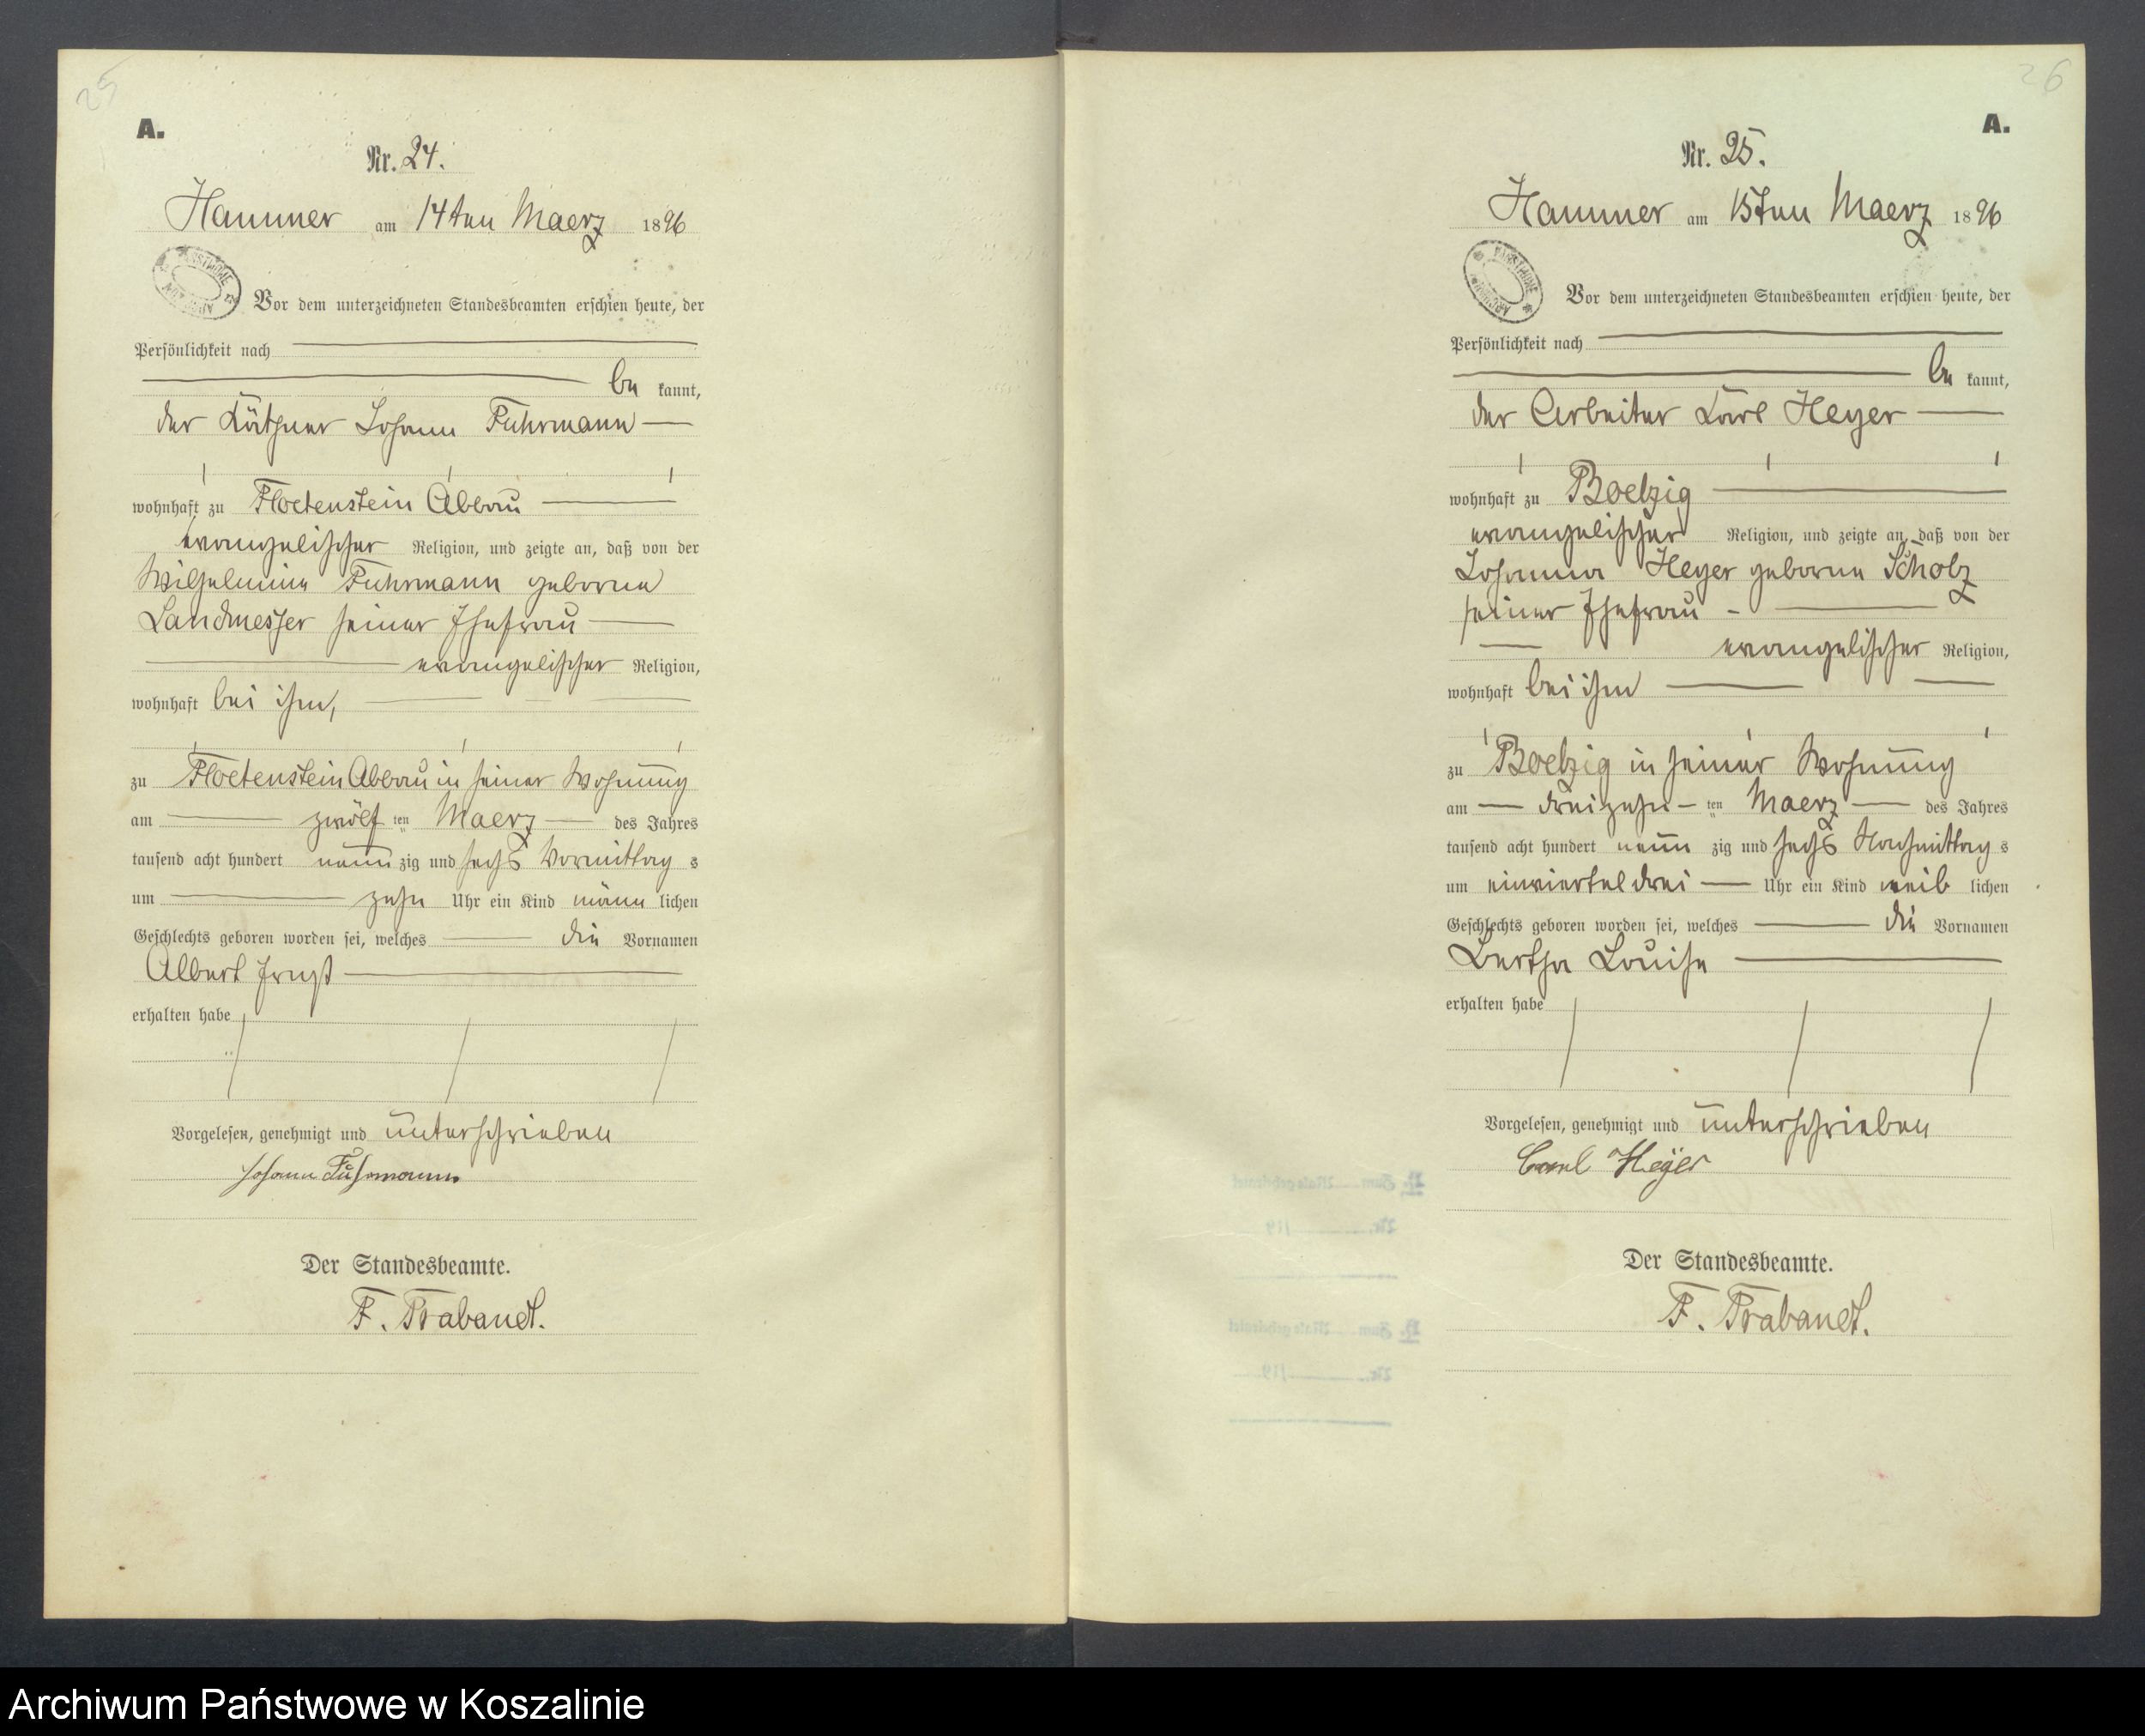 25
A.
Nr. 24.
Hammer am 14ten Maerz 1896
Vor dem unterzeichneten Standesbeamten erschien heute, der
Persönlichkeit nach
be kannt,
der Käthner Johann Fuhrmann
wohnhaft zu Floetenstein Abbau
evangelischer Religion, und zeigte an, daß von der
Wilhelmine Fuhrmann geborne
Landmesser seiner Ehefrau
evangelischer Religion,
wohnhaft bei ihm,
zu Floetenstein Abbau in seiner Wohnung
am zwölf ten Maerz des Jahres
tausend acht hundert neun zig und sechs Vormittag s
um zehn Uhr ein Kind männ lichen
Geschlechts geboren worden sei, welches die Vornamen
Albert Ernst
erhalten habe
Vorgelesen, genehmigt und unterschrieben
Johann Fuhrmann
Der Standesbeamte.
F. Trabandt.
26
A.
Nr. 25.
Hammer am 15ten Maerz 1896
Vor dem unterzeichneten Standesbeamten erschien heute, der
Persönlichkeit nach
be kannt,
der Arbeiter Karl Heyer
wohnhaft zu Boelzig
evangelischer Religion, und zeigte an, daß von der
Johanna Heyer geborne Scholz
seiner Ehefrau
evangelischer Religion,
wohnhaft bei ihm
zu Boelzig in seiner Wohnung
am dreizehn ten Maerz des Jahres
tausend acht hundert neun zig und sechs Nachmittag s
um einviertel drei Uhr ein Kind weib lichen
Geschlechts geboren worden sei, welches die Vornamen
Bertha Louise
erhalten habe
Vorgelesen, genehmigt und unterschrieben
Carl Heÿer
Der Standesbeamte.
F. Trabandt.
Archiwum Państwowe w Koszalinie